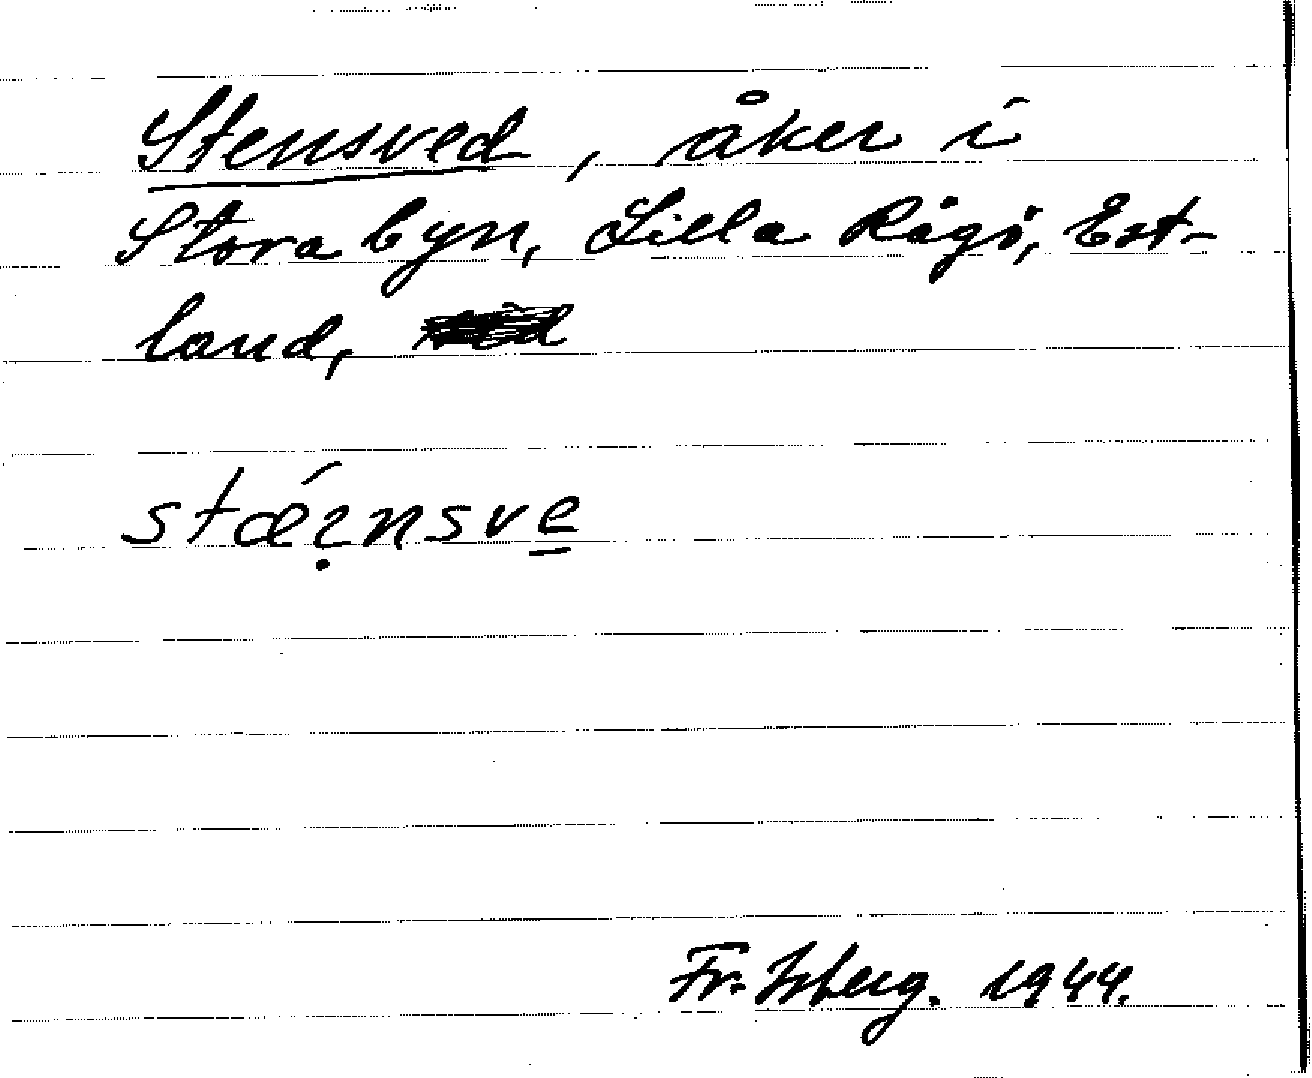 Stensved, åker i
Stora byn, Lilla Rågö, Est-
land,
stǽı̣nsve̲
Fr. Isberg. 1944.